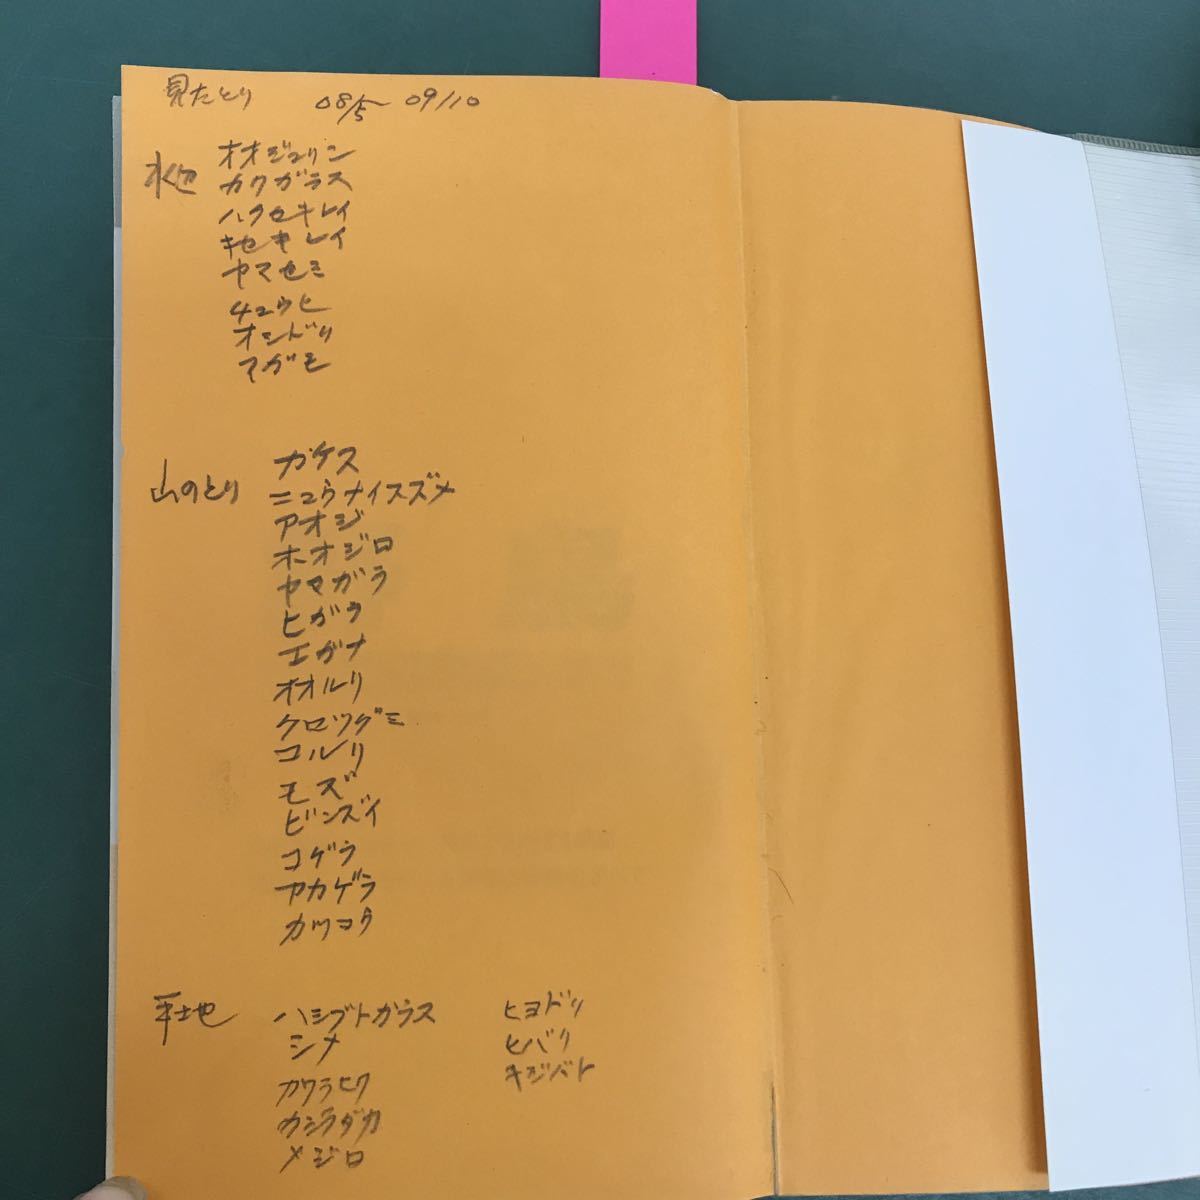 見たとり 08/5~09/10
水辺
オオジュリン
カワガラス
ハクセキレイ
キセキレイ
ヤマセミ
チュウヒ
オシドリ
マガモ
山のとり
カケス
ニュウナイスズメ
アオジ
ホオジロ
ヤマガラ
ヒガラ
エガナ
オオルリ
クロツグミ
コルリ
モズ
ビンズイ
コゲラ
アカゲラ
カッコウ
平地
ハシブトガラス
シメ
カワラヒワ
カシラダカ
メジロ
ヒヨドリ
ヒバリ
キジバト